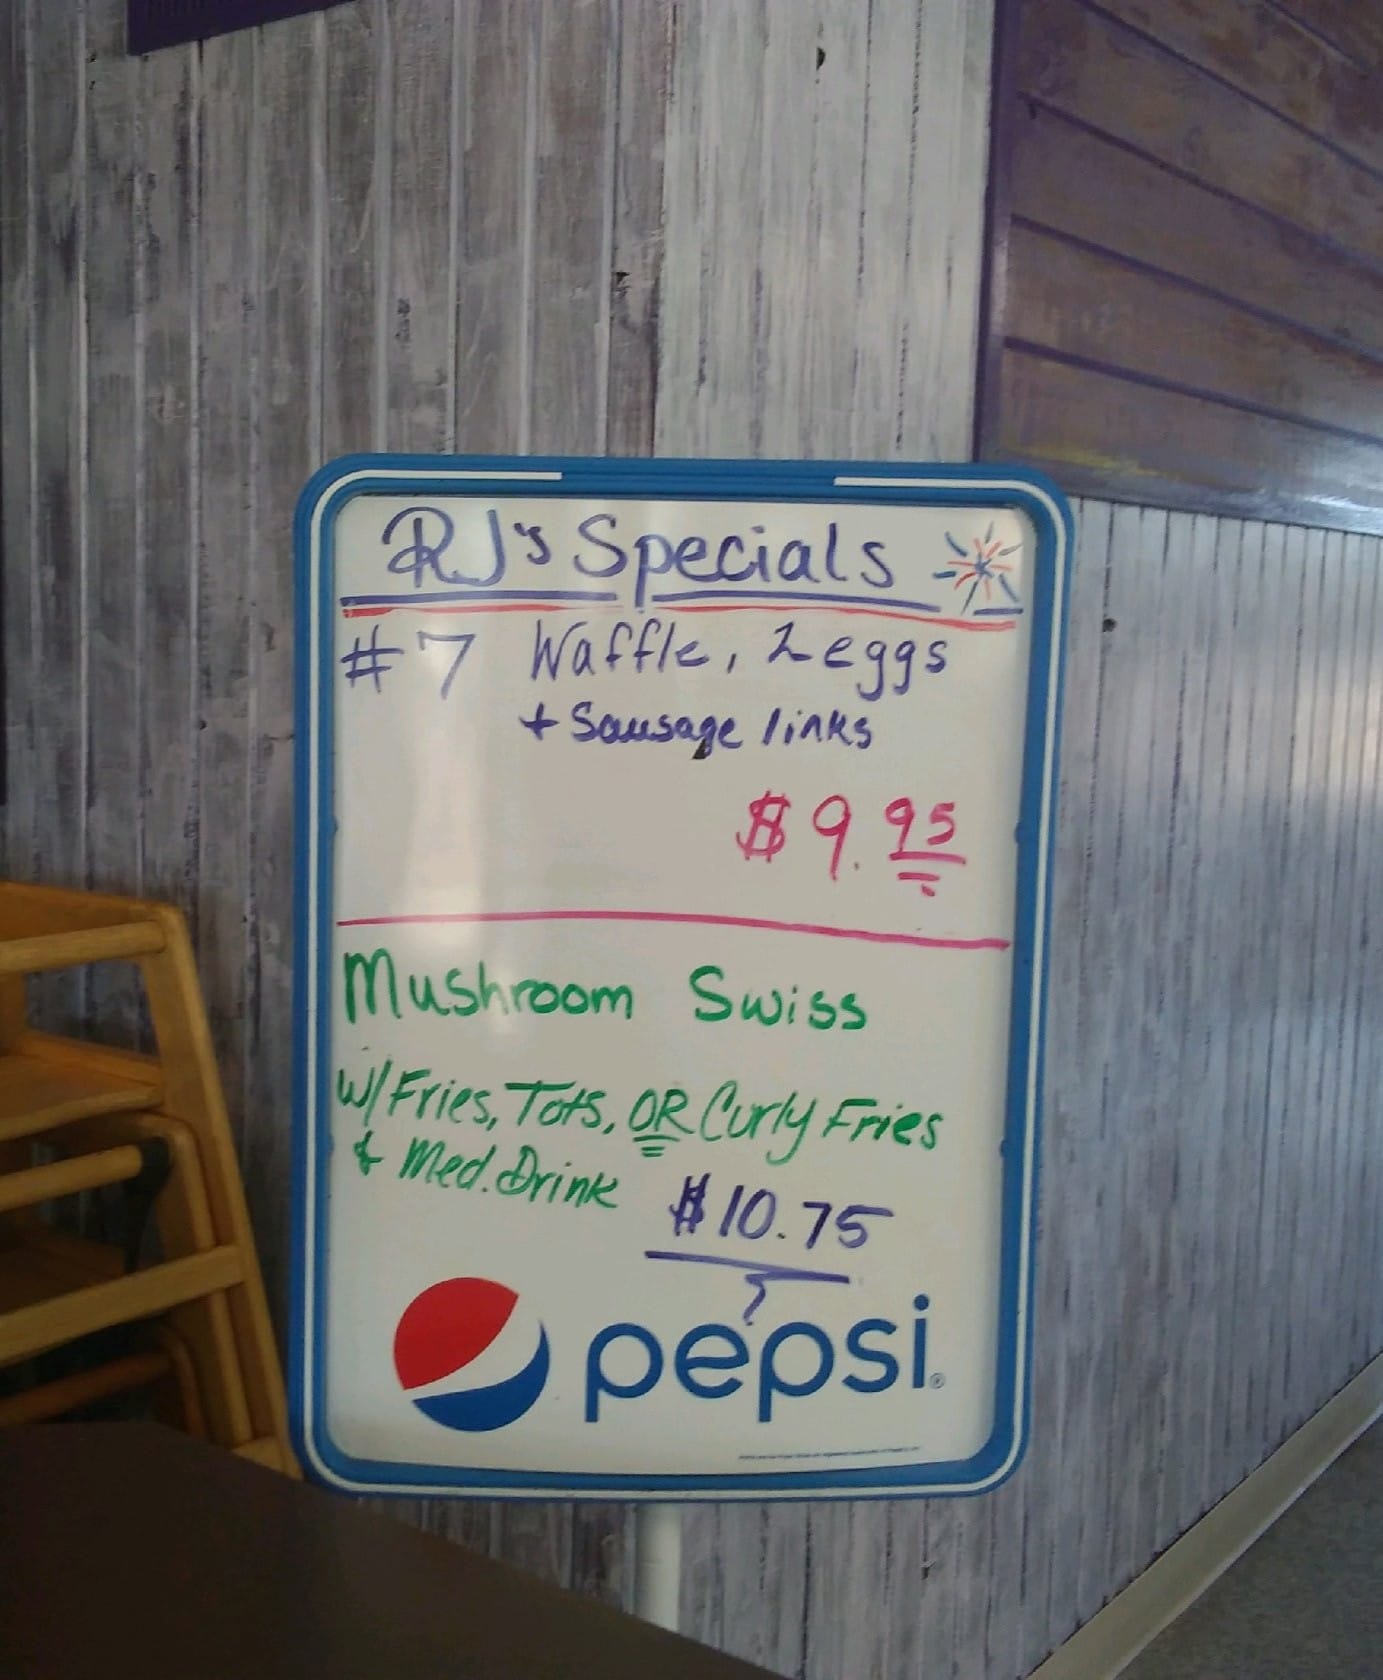 RJ's Specials
#7 Waffle, 2 eggs
+ Sausage links
$9.95
Mushroom Swiss
w/Fries, Tots, OR Curly Fries
& Med. Drink
$10.75
pepsi®